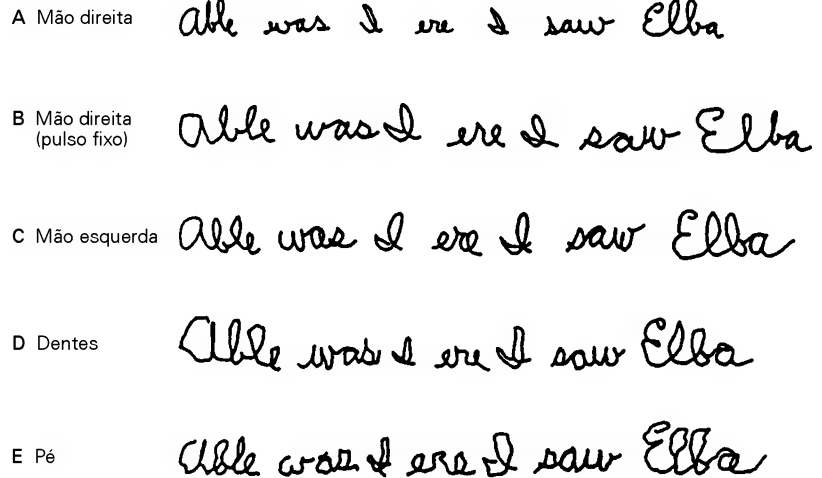 A Mão direita Able was I ere I saw Elba
B Mão direita (pulso fixo) Able was I ere I saw Elba
C Mão esquerda Able was I ere I saw Elba
D Dentes Able was I ere I saw Elba
E Pé Able was I ere I saw Elba